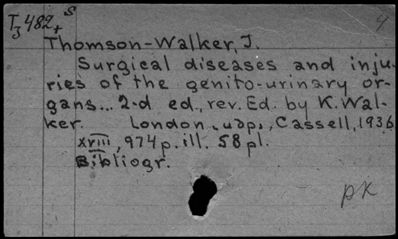 T₃482₊ s 9
Thomson-Walker, J.
Surgical diseases and inju-
ries of the genito-urinary or-
gans... 2-d ed., rev. Ed. by K. Wal-
ker. London, udp., Cassell, 1936
xviii, 974 p. ill. 58 pl.
Bibliogr.
pk